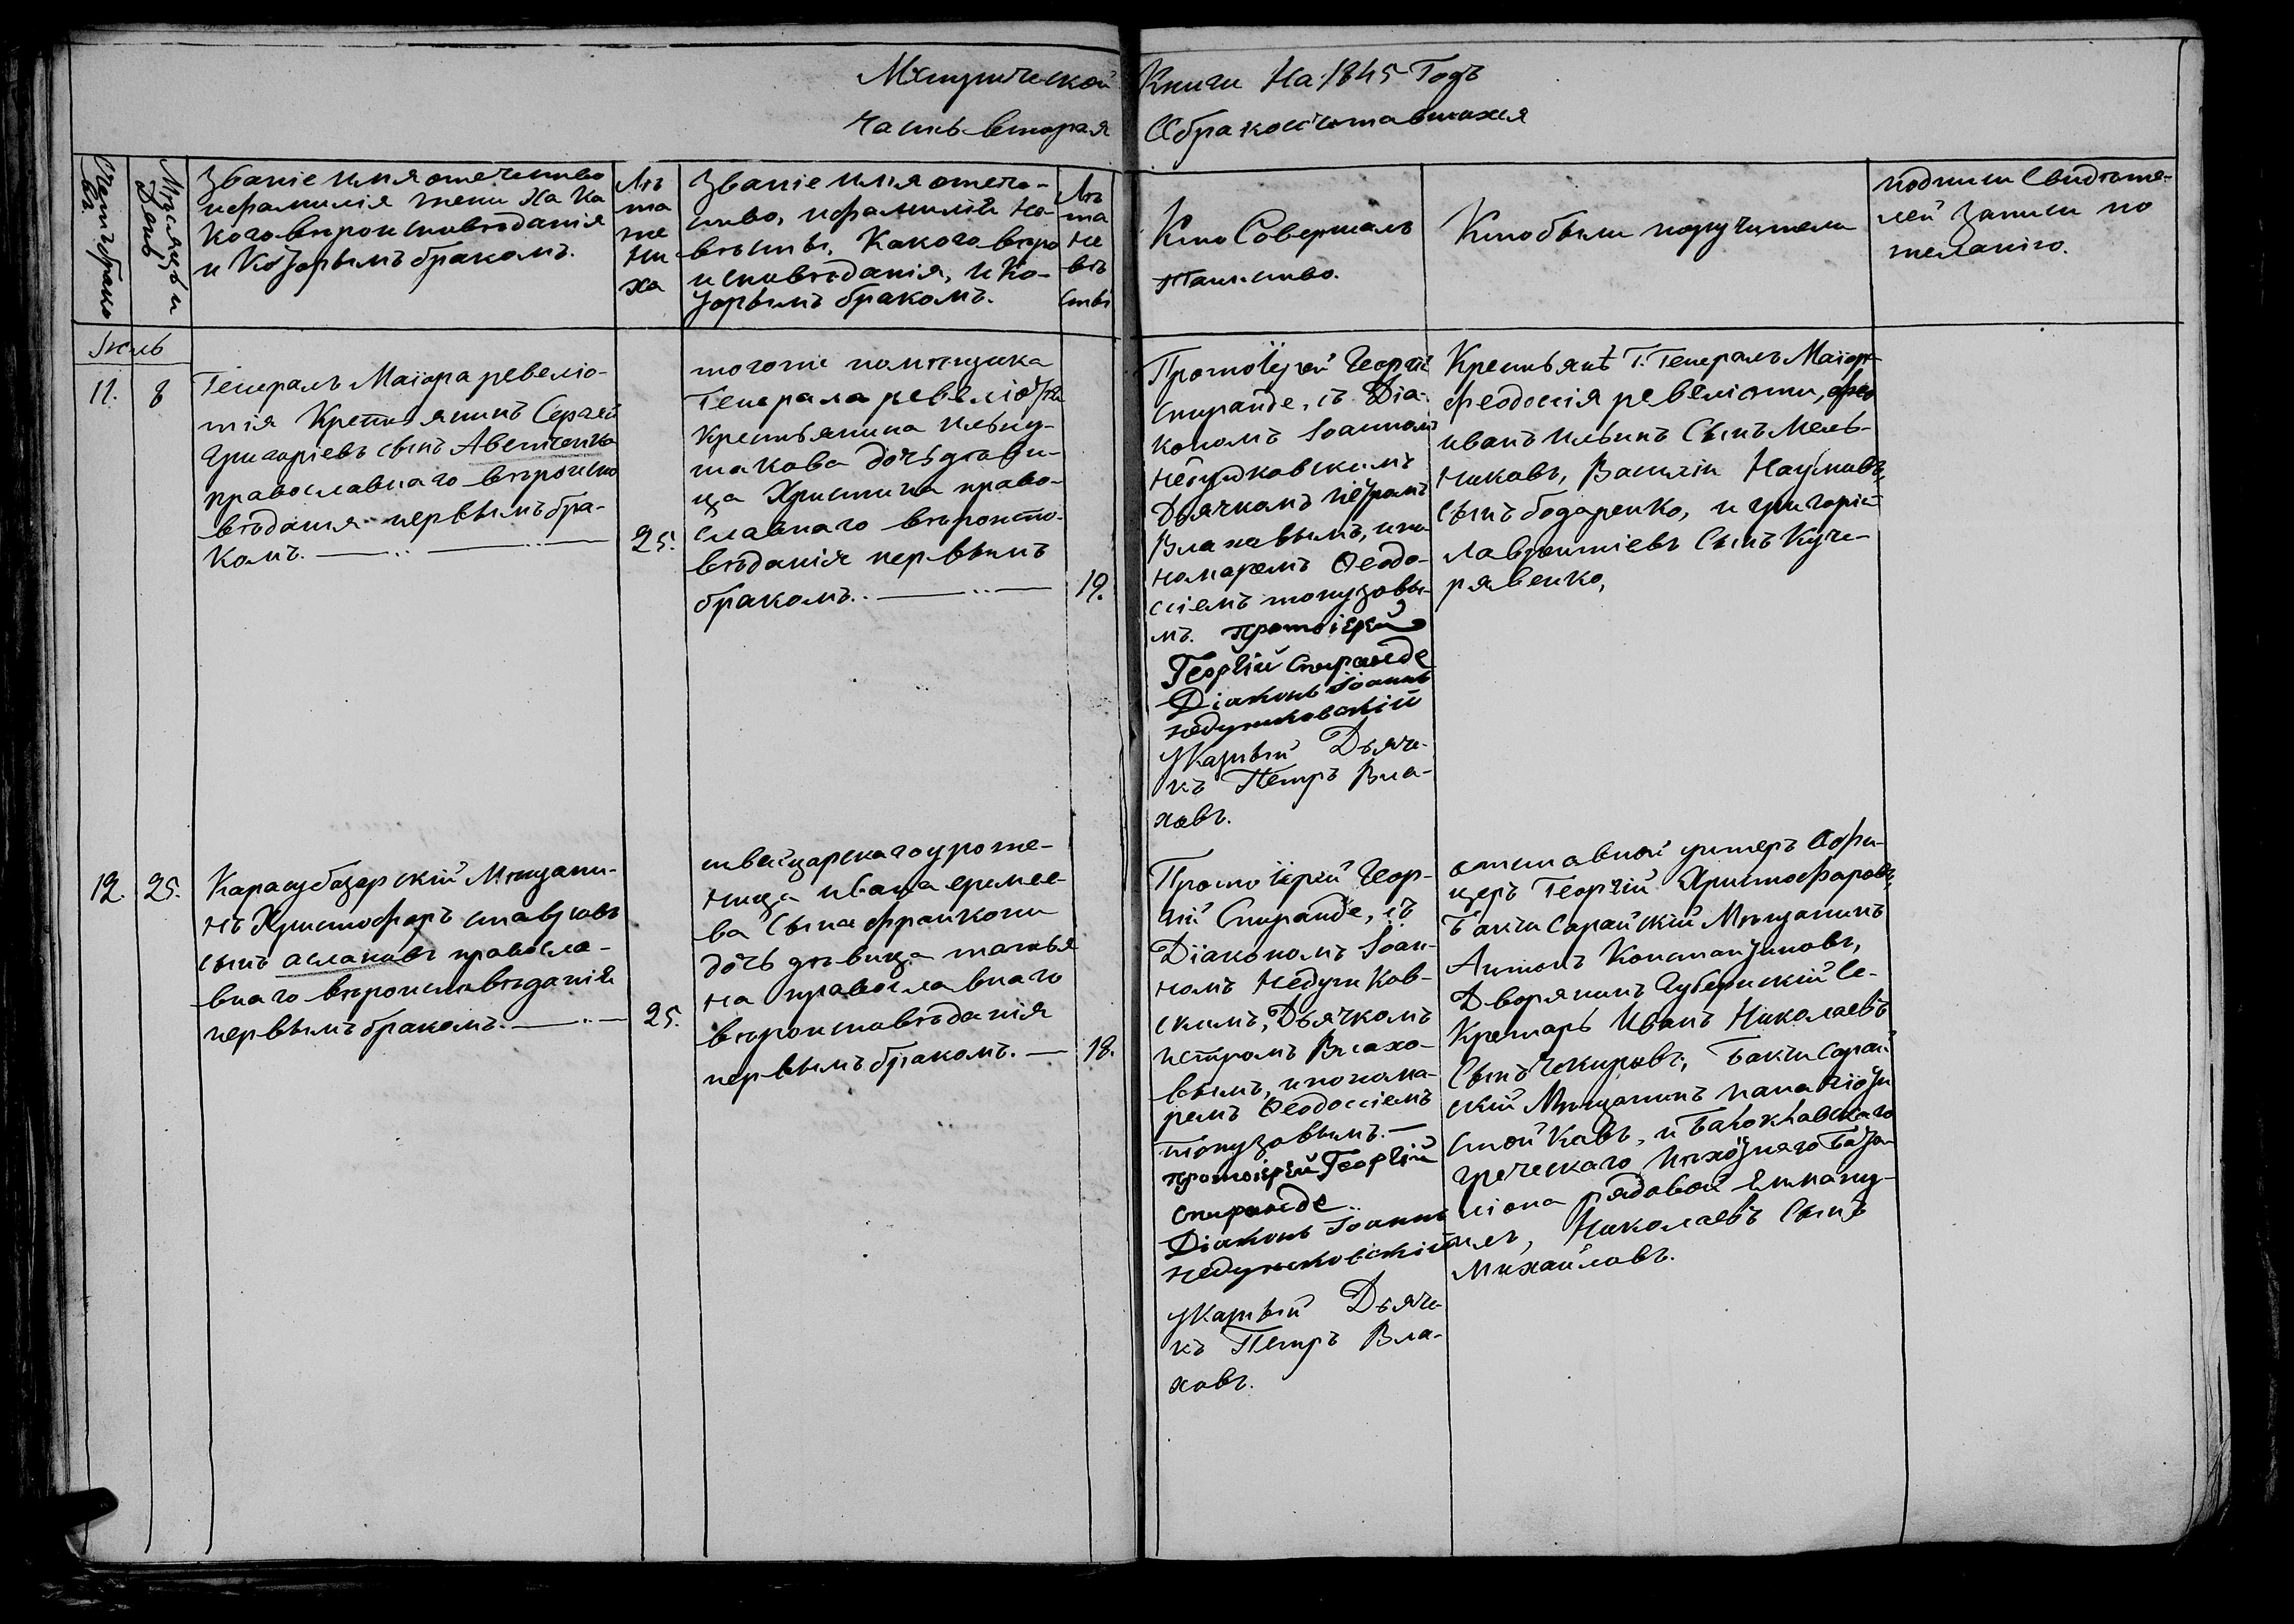 Метрической Книги На 1845 Годъ
Часть вторая О бракосочетавшихся
Счетъ браковъ.
Мѣсяцъ и День
Званіе имя отечество
и фамилія жениха ка
кого вѣроисповѣданія
и которымъ бракомъ.
Лѣ
та
же
ни
ха
Званіе имя отече-
ство, и фамилія не-
вѣсты, Какого вѣро
исповѣданія, и ко-
торымъ бракомъ.
Лѣ
та
не
вѣ
сты
Кто Совершалъ
таинство.
Кто были поручители
подписи Свидѣте-
лей записи по
желанію.
Іюль
11. 8
Генералъ Маіора ревеліо-
тія Крестьянинъ Сергей
Григоріевъ сынъ
православнаго вѣроиспо
вѣданія первымъ бра-
комъ.
25.
тогоже помѣщика
Генерала ревеліоти
Крестьянина Ильи
дочь дѣви-
ца Христина право-
славнаго вѣроиспо-
вѣданія первымъ
бракомъ.
19.
Протоіерей Георгій
Спиранде, съ Діа-
кономъ Іоанномъ
Недзулковскимъ
Дьячкомъ Петромъ
Влаховымъ, и по
номаремъ Феодо-
сіемъ топузовы-
мъ. протоіерей
Георгій Спиранде
Діаконъ Іоаннъ
Указный Дьяче-
къ Петръ Вла-
ховъ.
Крестьяне Г. Генералъ Маіора
Феодосія ревеліоти,
иванъ Ильинъ Сынъ Мель-
никовъ, Василій Наумовъ
сынъ бодаренко, и григорій
Лаврентіевъ Сынъ Куче-
рявенко,
12. 25.
Карасубазарскій Мѣщани-
нъ Христофоръ ставровъ
сынъ аслановъ правосла-
внаго вѣроисповѣданія
первымъ бракомъ.
25.
швейцарскаго уроже-
нца ивана еремее-
ва сына франкони
дочь дѣвица татья
на православнаго
вѣроисповѣданія
первымъ бракомъ.
18.
Протоіерей Геор-
гій Спиранде, съ
Діакономъ Іоан-
номъ Недзулков-
скимъ, Дьячкомъ
петромъ Влахо-
вымъ, и понома-
ремъ Феодосіемъ
топузовымъ.
протоіерей Георгій
спиранде
Діаконъ Іоаннъ
Указный Дьяче-
къ Петръ Вла-
ховъ.
отставной унтеръ Офи-
церъ Георгій Христофоровъ,
Бакчисарайскій Мѣщанинъ
Антонъ Константиновъ,
Дворянинъ Губернскій Се-
кретарь Иванъ Николаевъ
Сынъ Чекировъ, Бакчисарай
скій Мѣщанинъ панагіоти
стойковъ, и Балоклавскаго
греческаго пѣхотнаго Бата
ліона рядовой Еммануи-
лъ, Николаевъ Сынъ
Михайловъ.